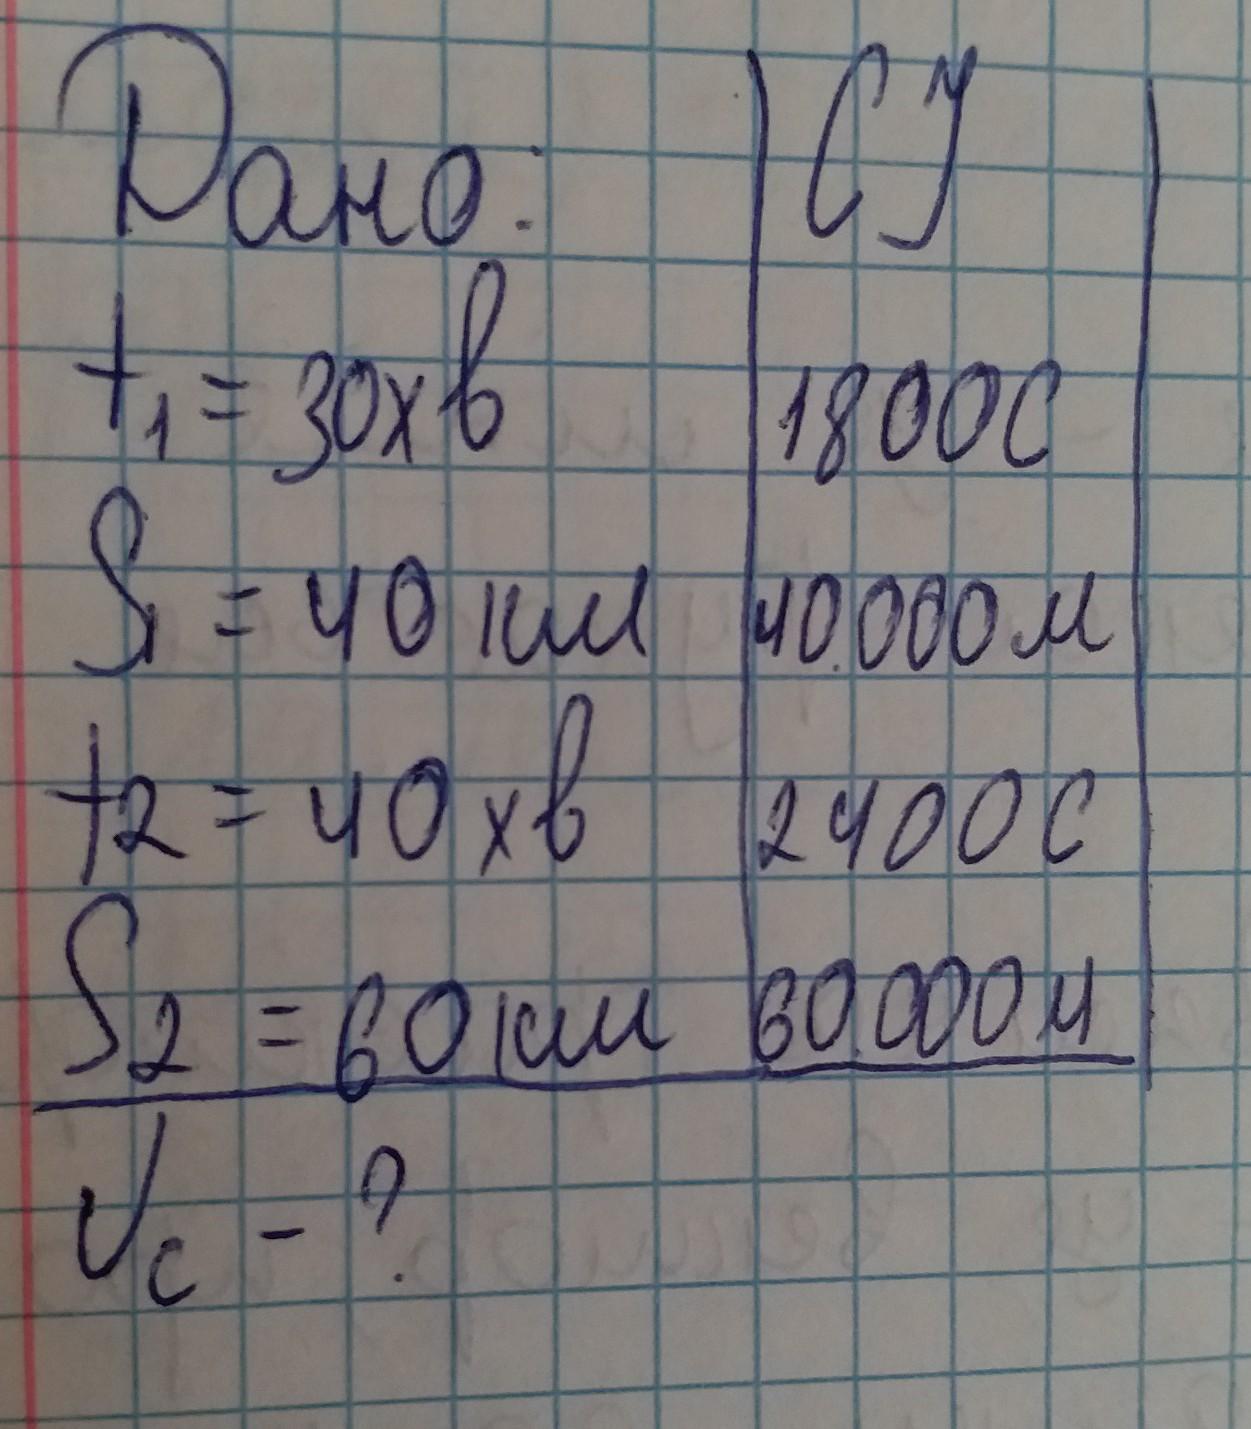 Дано: СІ
t1 = 30хв 1800С
S1 = 40 км 40.000м
t2 = 40 хв 2400С
S2 = 60км 60.000м
Vc - ?